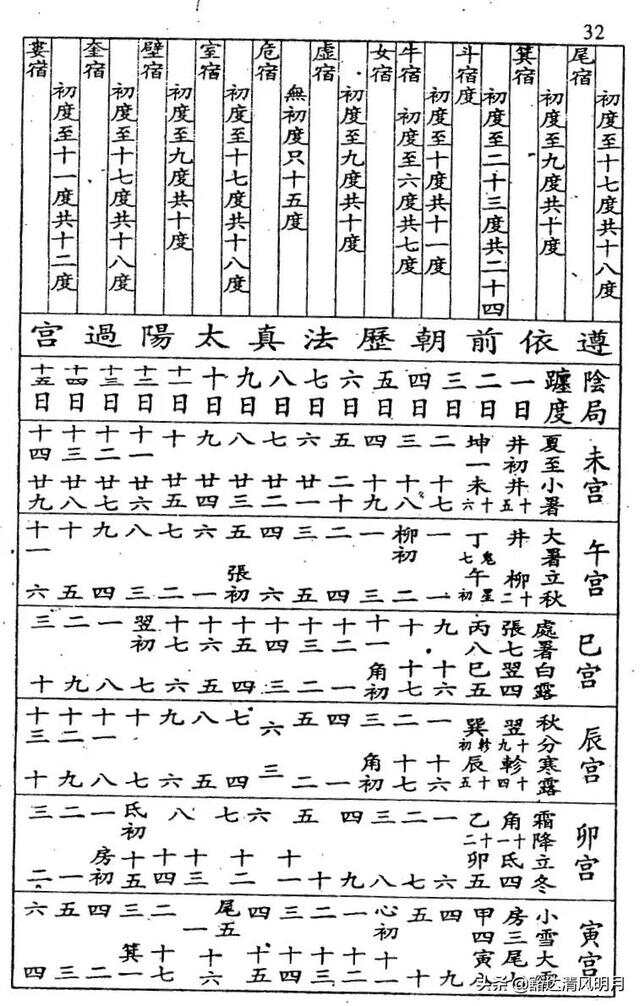 32
初度至十七度共十八度
尾宿
初度至九度共十度
箕宿
初度至二十三度共二十四
斗宿度
初度至十度共十一度
牛宿 初度至六度共七度
女宿
初度至九度共十度
虛宿
無初度只十五度
危宿
初度至十七度共十八度
室宿
初度至九度共十度
壁宿
初度至十七度共十八度
奎宿
初度至十一度共十二度
婁宿
遵依前朝歷法真太陽過宮
陰局
躔度
一日 二日 三日 四日 五日 六日 七日 八日 九日 十日 十一日 十二日 十三日 十四日 十五日
未宮
夏至小暑
井初井十五
坤一未十六
二 三 四 五 六 七 八 九 十 十一 十二 十三 十四
十七 十八 十九 二十 廿一 廿二 廿三 廿四 廿五 廿六 廿七 廿八 廿九
午宮
大暑立秋
井 柳十二
丁鬼七午星初
一 柳初 一 二 三 四 五 六 七 八 九 十 十一
一 二 三 四 五 六 張初 一 二 三 四 五 六
巳宮
處暑白露
張七翌四
丙八巳五
九 十 十一 十二 十三 十四 十五 十六 十七 翌初 一 二 三
十六 十七 角初 一 二 三 四 五 六 七 八 九 十
辰宮
秋分寒露
翌十九軫十四
巽軫初辰十五
一 二 三 四 五 六 七 八 九 十 十一 十二 十三
十六 十七 角初 一 二 三 四 五 六 七 八 九 十
卯宮
霜降立冬
角十一氐四
乙十二卯五
一 二 三 四 五 六 七 八 氐初 一 二 三
六 七 八 九 十 十一 十二 十三 十四 十五 房初 一 二
寅宮
小雪大雪
房三尾
甲四寅
四 五 心初 一 二 三 四 尾五 二 三 四 五 六
九 十 十一 十二 十四 十五 十六 十七 箕 一 二 三 四
头条 @豁达清风明月